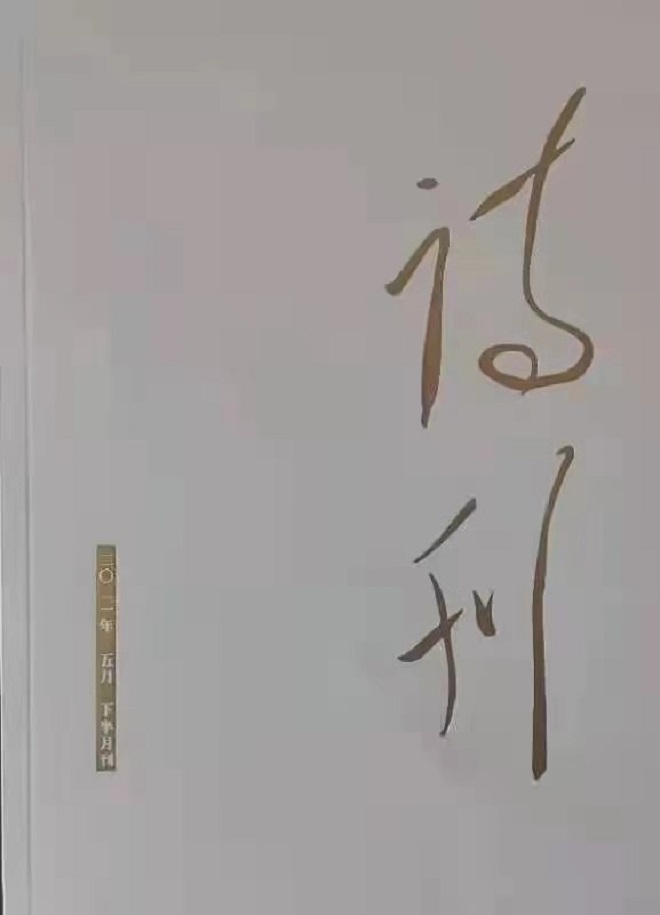 诗刊
二〇二一年 五月 下半月刊